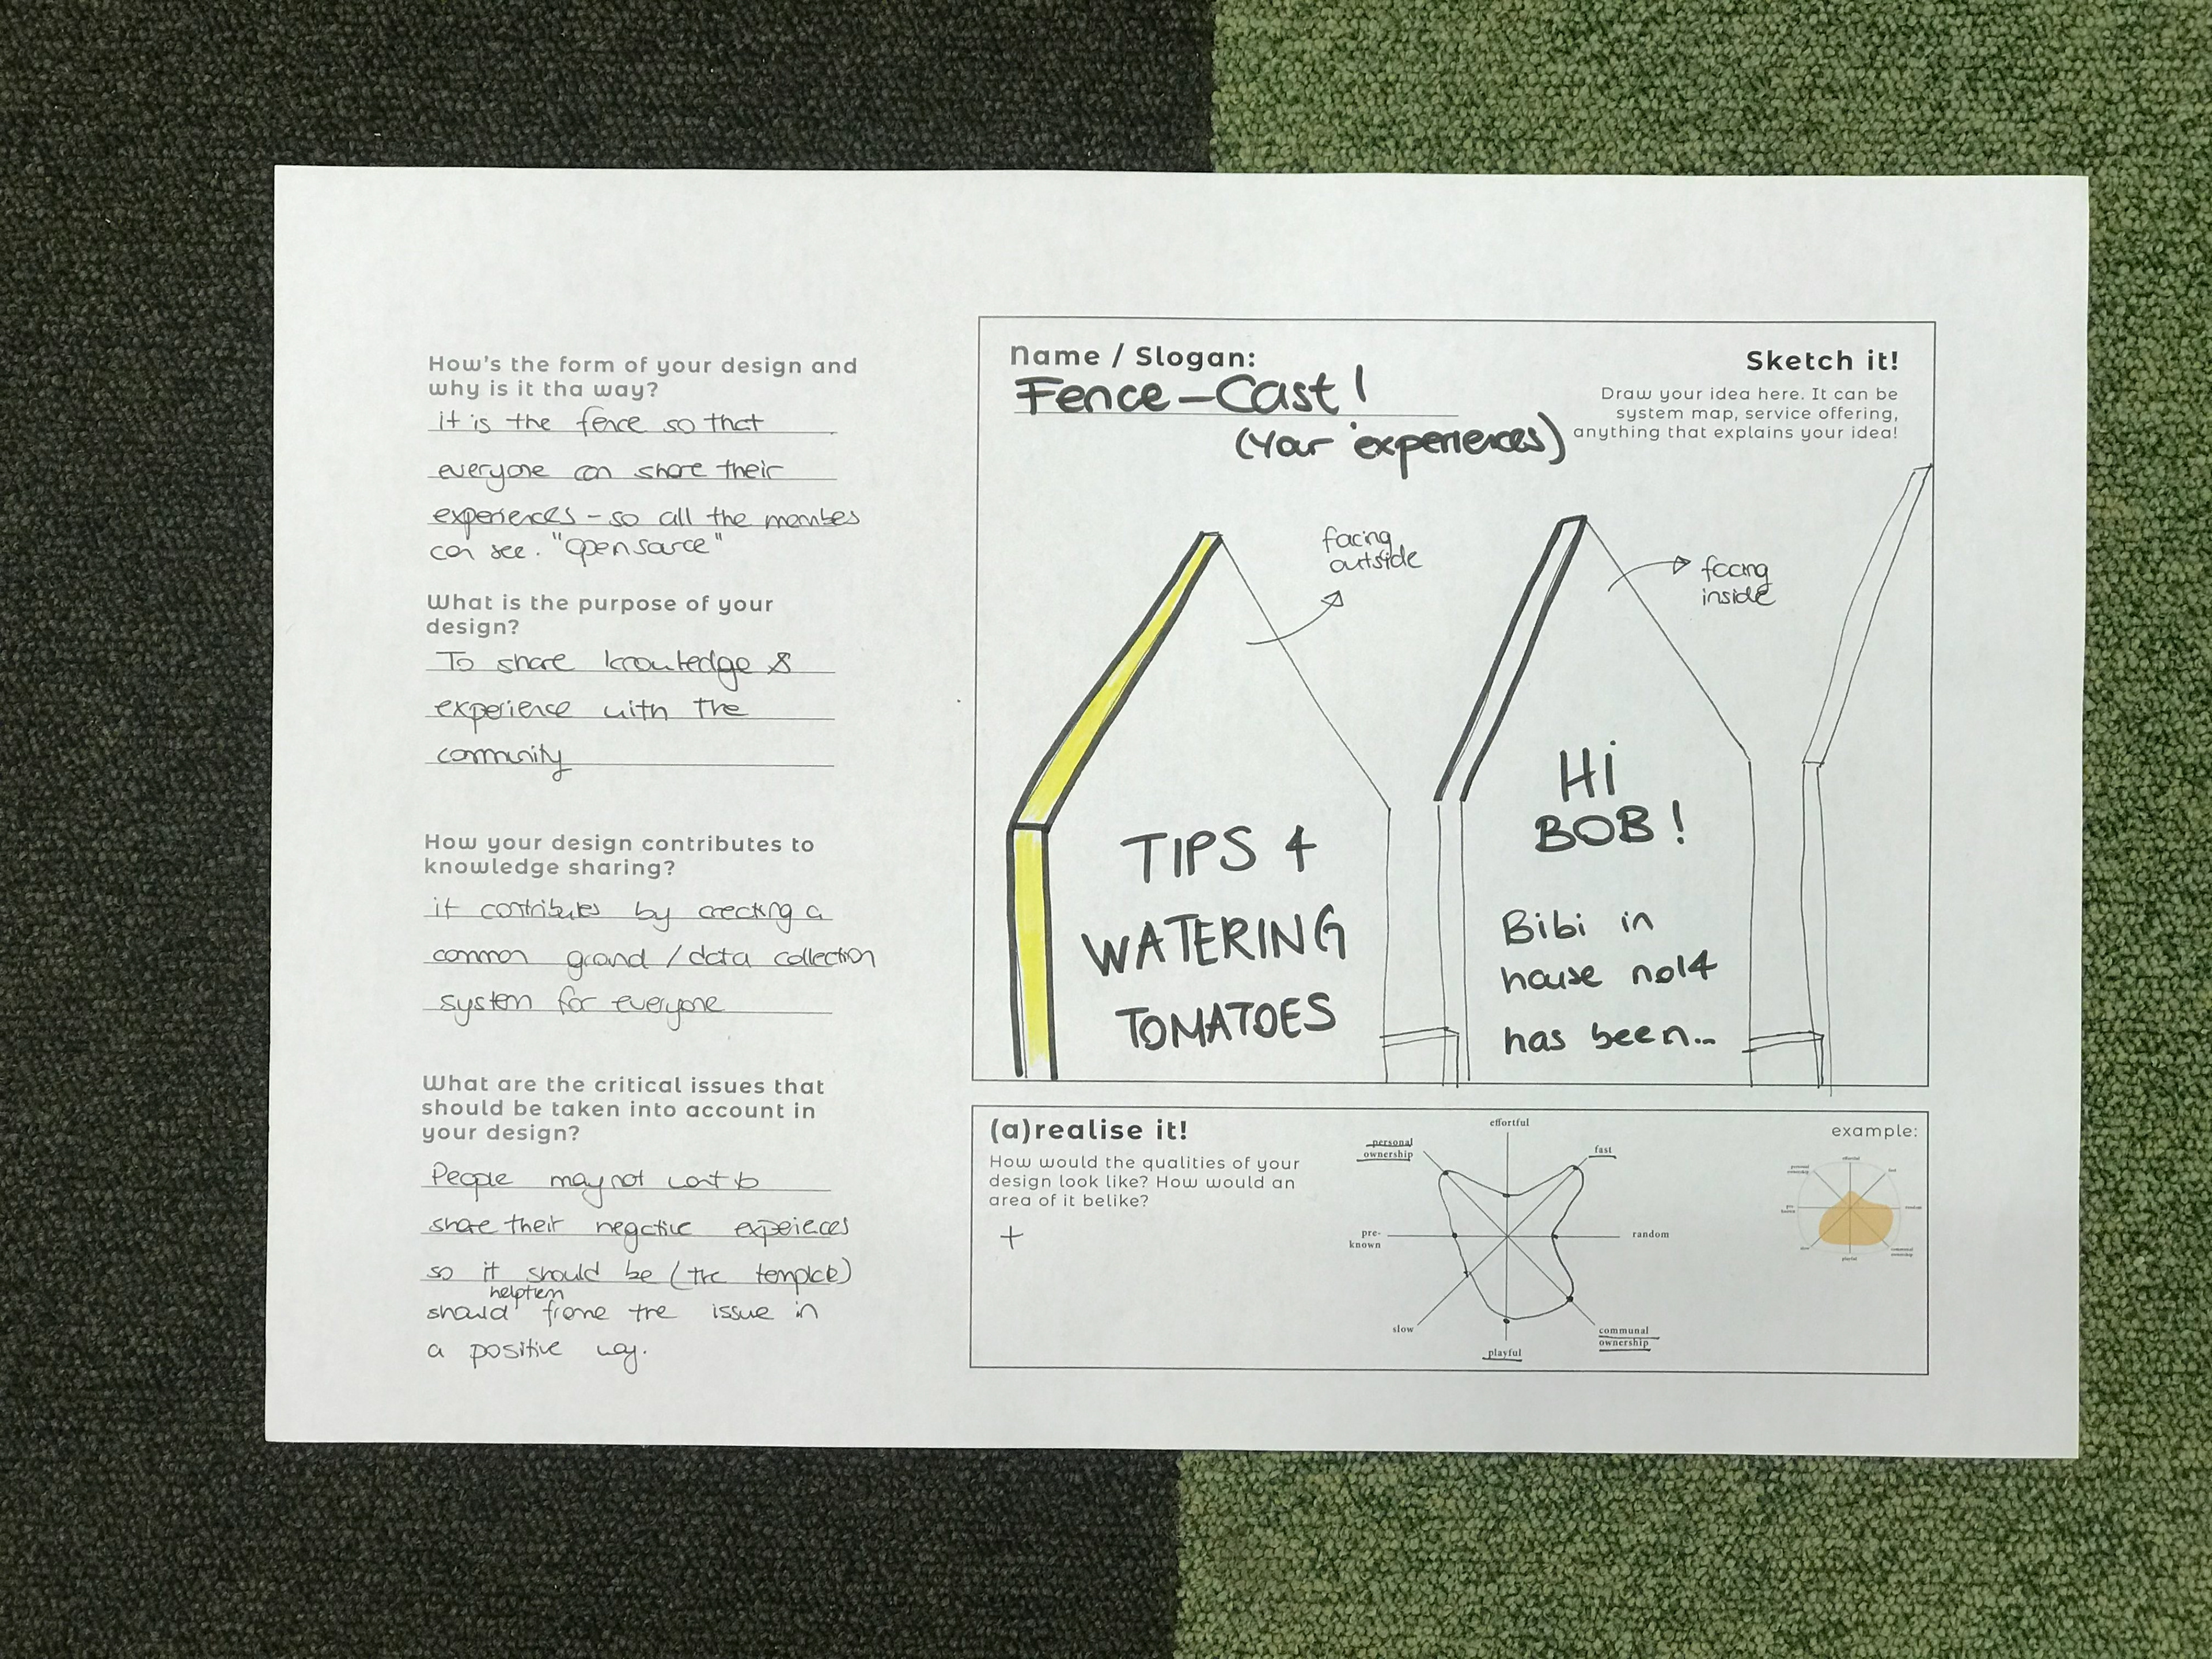 How's the form of your design and
why is it tha way?
it is the fence so that
everyone can share their
experiences - so all the membes
can see. "open source"
What is the purpose of your
design?
To share knowledge &
experience with the
community
How your design contributes to
knowledge sharing?
it contributes by creating a
common ground / data collection
system for everyone
What are the critical issues that
should be taken into account in
your design?
People may not want to
share their negative expeieces
so it should be (the template)
help them
should frame the issue in
a positive way.
Name / Slogan:
Fence-Cast!
(Your experiences)
Sketch it!
Draw your idea here. It can be
system map, service offering,
anything that explains your idea!
facing
outside
facing
inside
TIPS 4
WATERING
TOMATOES
Hi
BOB!
Bibi in
house no14
has been...
(a)realise it!
How would the qualities of your
design look like? How would an
area of it belike?
+
effortful
personal
ownership
fast
pre-
known
random
slow
communal
ownership
playful
example:
effortful
personal
ownership
fast
pre-
known
random
slow
communal
ownership
playful